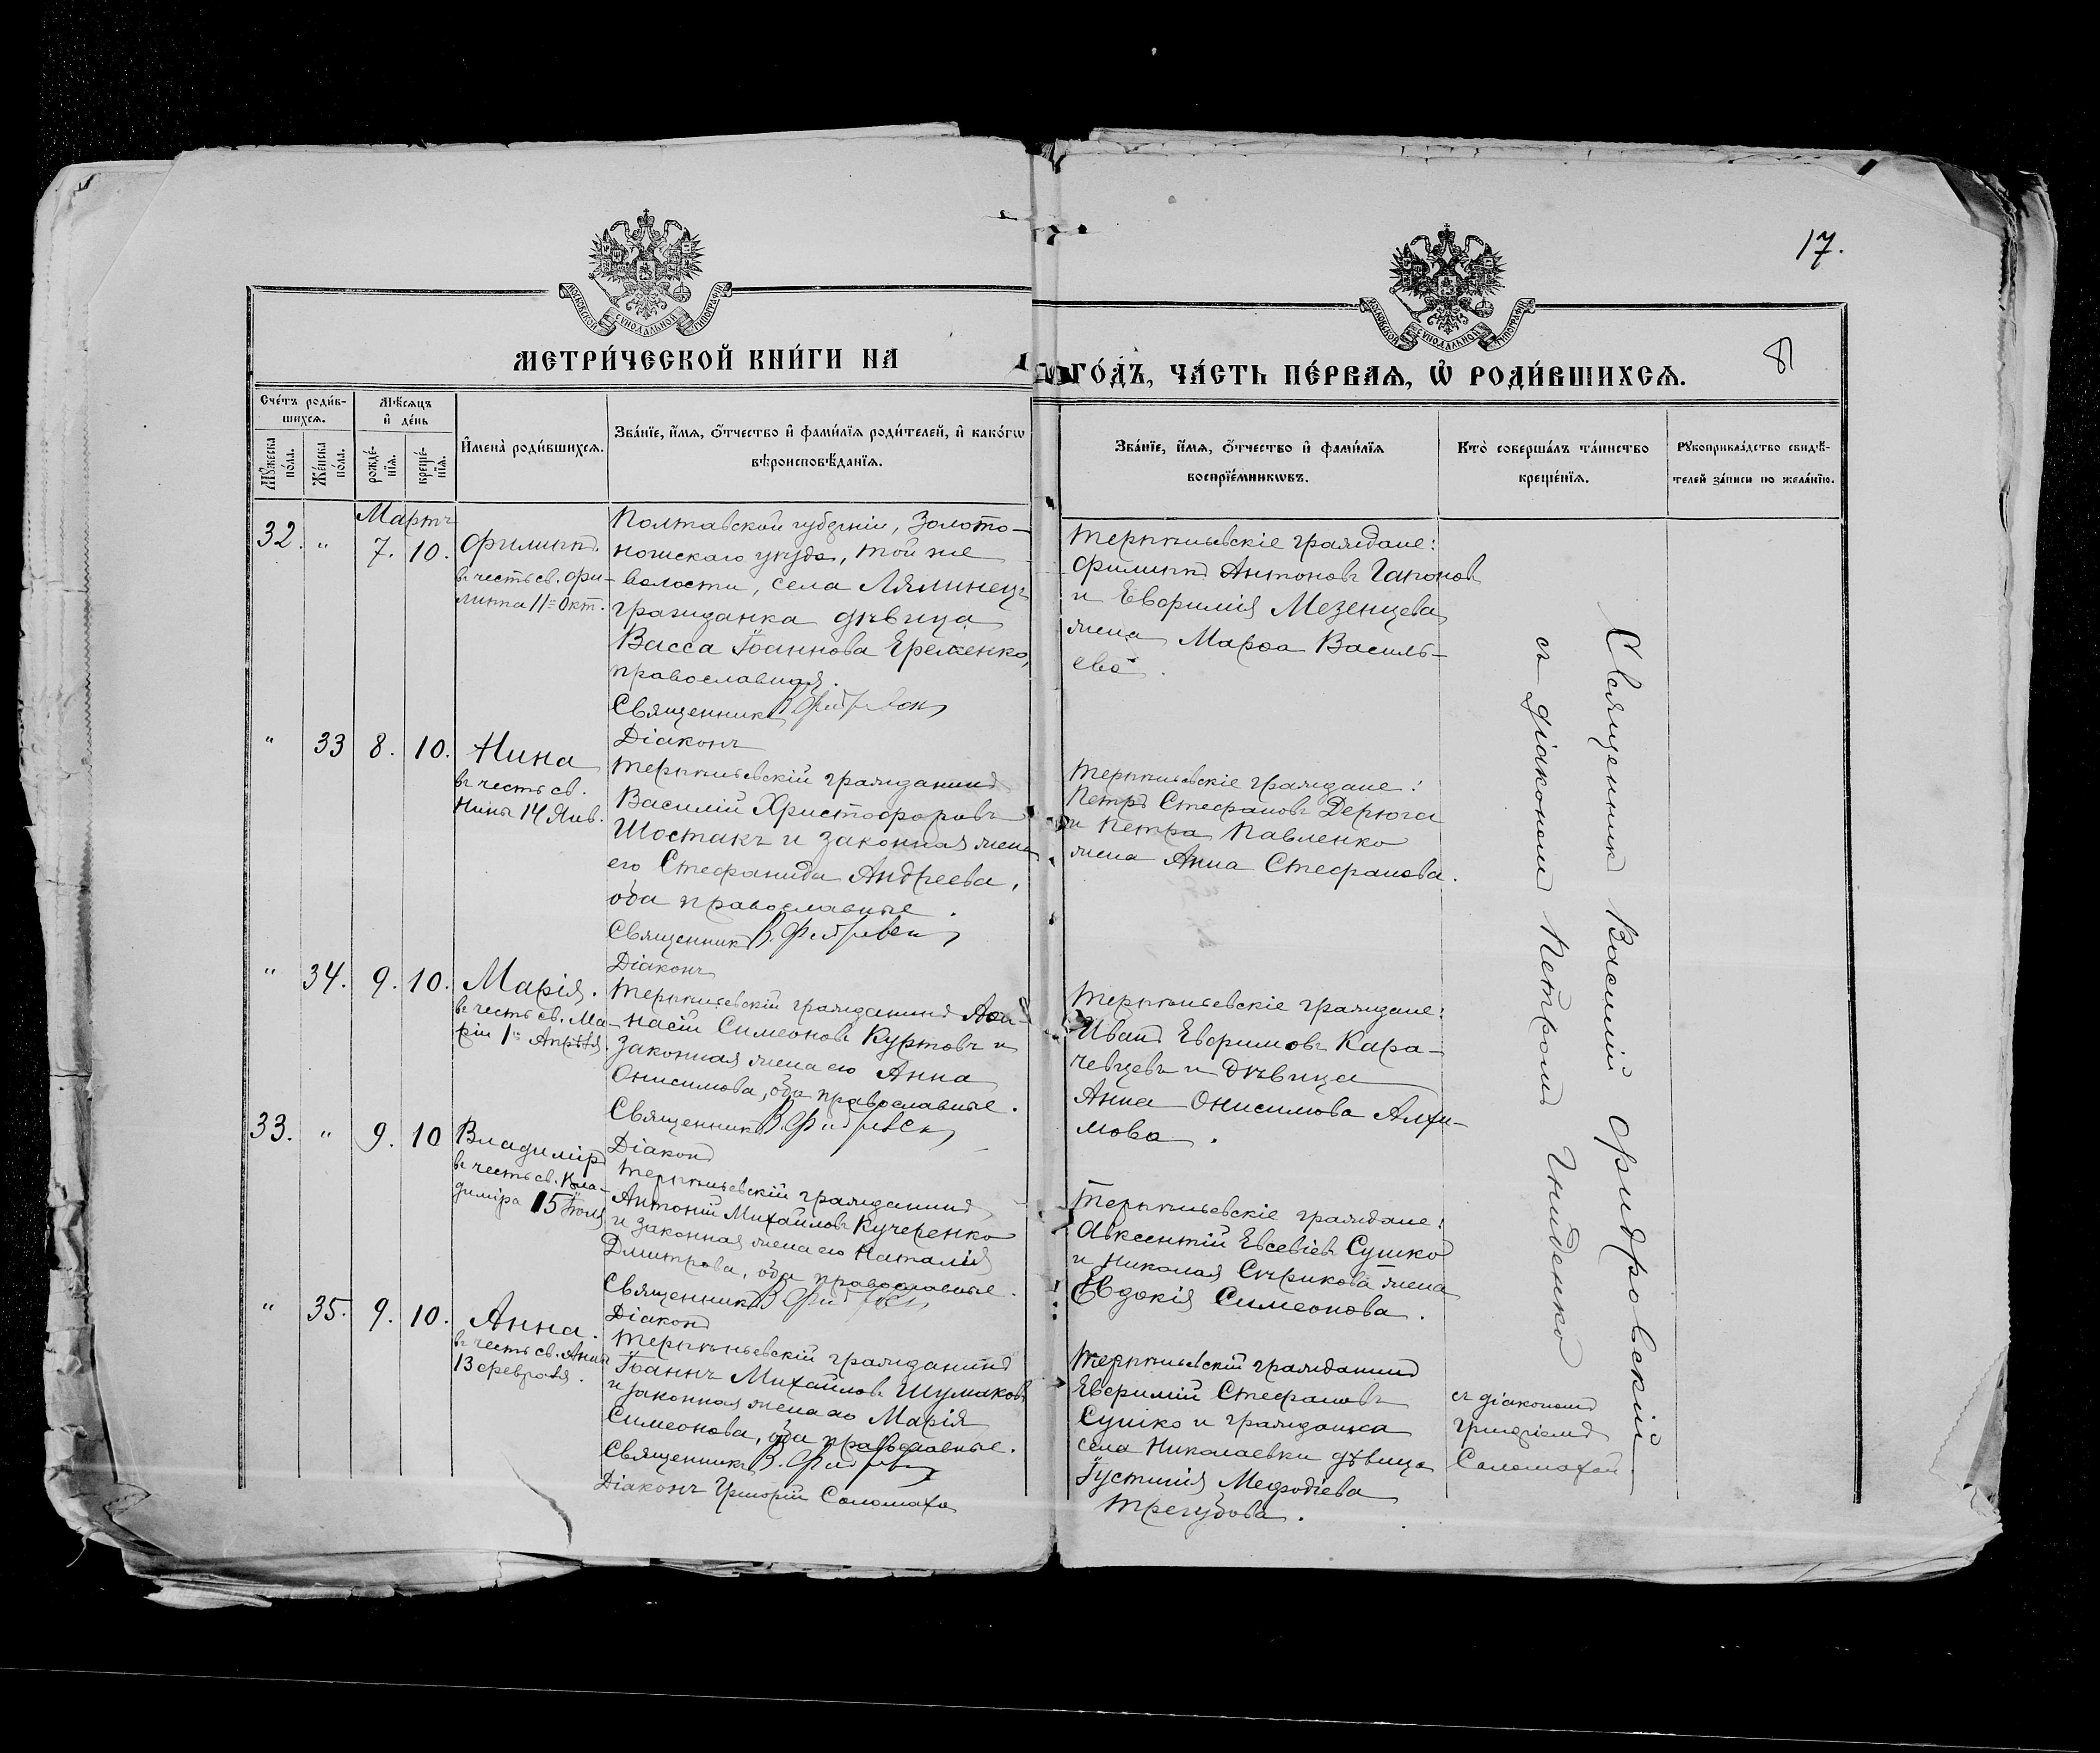 17.
8
МОСКОВСКОЙ СУНОДАЛЬНОЙ ТИПОГРАФІИ
МЕТРИ́ЧЕСКОЙ КНИ́ГИ НА
МОСКОВСКОЙ СУНОДАЛЬНОЙ ТИПОГРАФІИ
ГО́ДЪ, ЧА́СТЬ ПЕ́РВАЯ, Ѡ РОДИ́ВШИХСЯ.
Сче́тъ роди́в-
шихся.
Мꙋ́жеска по́ла.
Же́нска по́ла.
Мѣ́сяцъ и де́нь
рожде́-
нїя.
креще́-
нїя.
Имена̀ роди́вшихся.
Зва́нїе, и́мя, о́тчество и фами́лїя роди́телей, и како́гѡ
вѣроисповѣ́данїя.
Зва́нїе, и́мя, о́тчество и фами́лїя
воспрїе́мникѡвъ.
Кто̀ соверша́лъ та́инство
креще́нїя.
Рꙋкоприкла́дство свидѣ́-
телей за́писи по жела́нїю.
Мартъ
32. " 7. 10. Филиппъ.
въ честь св. Фи-
липпа 11го Окт.
Полтавской губерніи, Золото-
ношскаго уѣзда, той же
волости, села Лялинецъ
гражданка дѣвица
Васса Іоаннова Еременко,
православная.
Священникъ В. Фидровск
Діаконъ
Терпѣньевскіе граждане:
Филиппъ Антоновъ Гапонов
и Евфимія Мезенцева
жена Марѳа Василь-
ева.
" 33 8. 10. Нина
въ честь св.
Нины 14 Янв.
Терпѣньевскій гражданинъ
Василій Христофоровъ
Шостакъ и законная жена
его Стефанида Андреева,
оба православные.
Священникъ В. Фидровск
Діаконъ
Терпѣньевскіе граждане:
Петръ Стефановъ Дерюга
и Петра Павленко
жена Анна Стефанова.
" 34. 9. 10. Марія.
въ честь св. Ма-
ріи 1го Апрѣля.
Терпѣньевскій гражданинъ Аѳа-
насій Симеоновъ Куртовъ и
законная жена его Анна
Онисимова, оба православные.
Священникъ В. Фидровск
Діаконъ
Терпѣньевскіе граждане:
Иванъ Евфимовъ Кара-
чевцевъ и дѣвица
Анна Онисимова Алхи-
мова.
33. " 9. 10 Владиміръ
въ честь св. Вла-
диміра 15 Іюля
Терпѣньевскій гражданинъ
Антоній Михайловъ Кучеренко
и законная жена его Наталія
Дмитрова, оба православные.
Священникъ В. Фидровск
Діаконъ
Терпѣньевскіе граждане:
Авксентій Евсевіевъ Сушко
и Николая Сѣрикова жена
Евдокія Симеонова.
" 35. 9. 10. Анна.
въ честь св. Анны
13 февраля.
Терпѣньевскій гражданинъ
Іоаннъ Михайловъ Шумаковъ
и законная жена его Марія
Симеонова, оба православные.
Священникъ В. Фидровск
Діаконъ Григорій Соломаха
Терпѣньевскій гражданинъ
Евфимій Стефановъ
Сушко и гражданка
села Николаевки дѣвица
Іустинія Мефодіева
Трегубова.
Священник Василій Фидровскій
съ діакономъ Петромъ Гниденко
съ діакономъ
Григоріемъ
Соломахой.